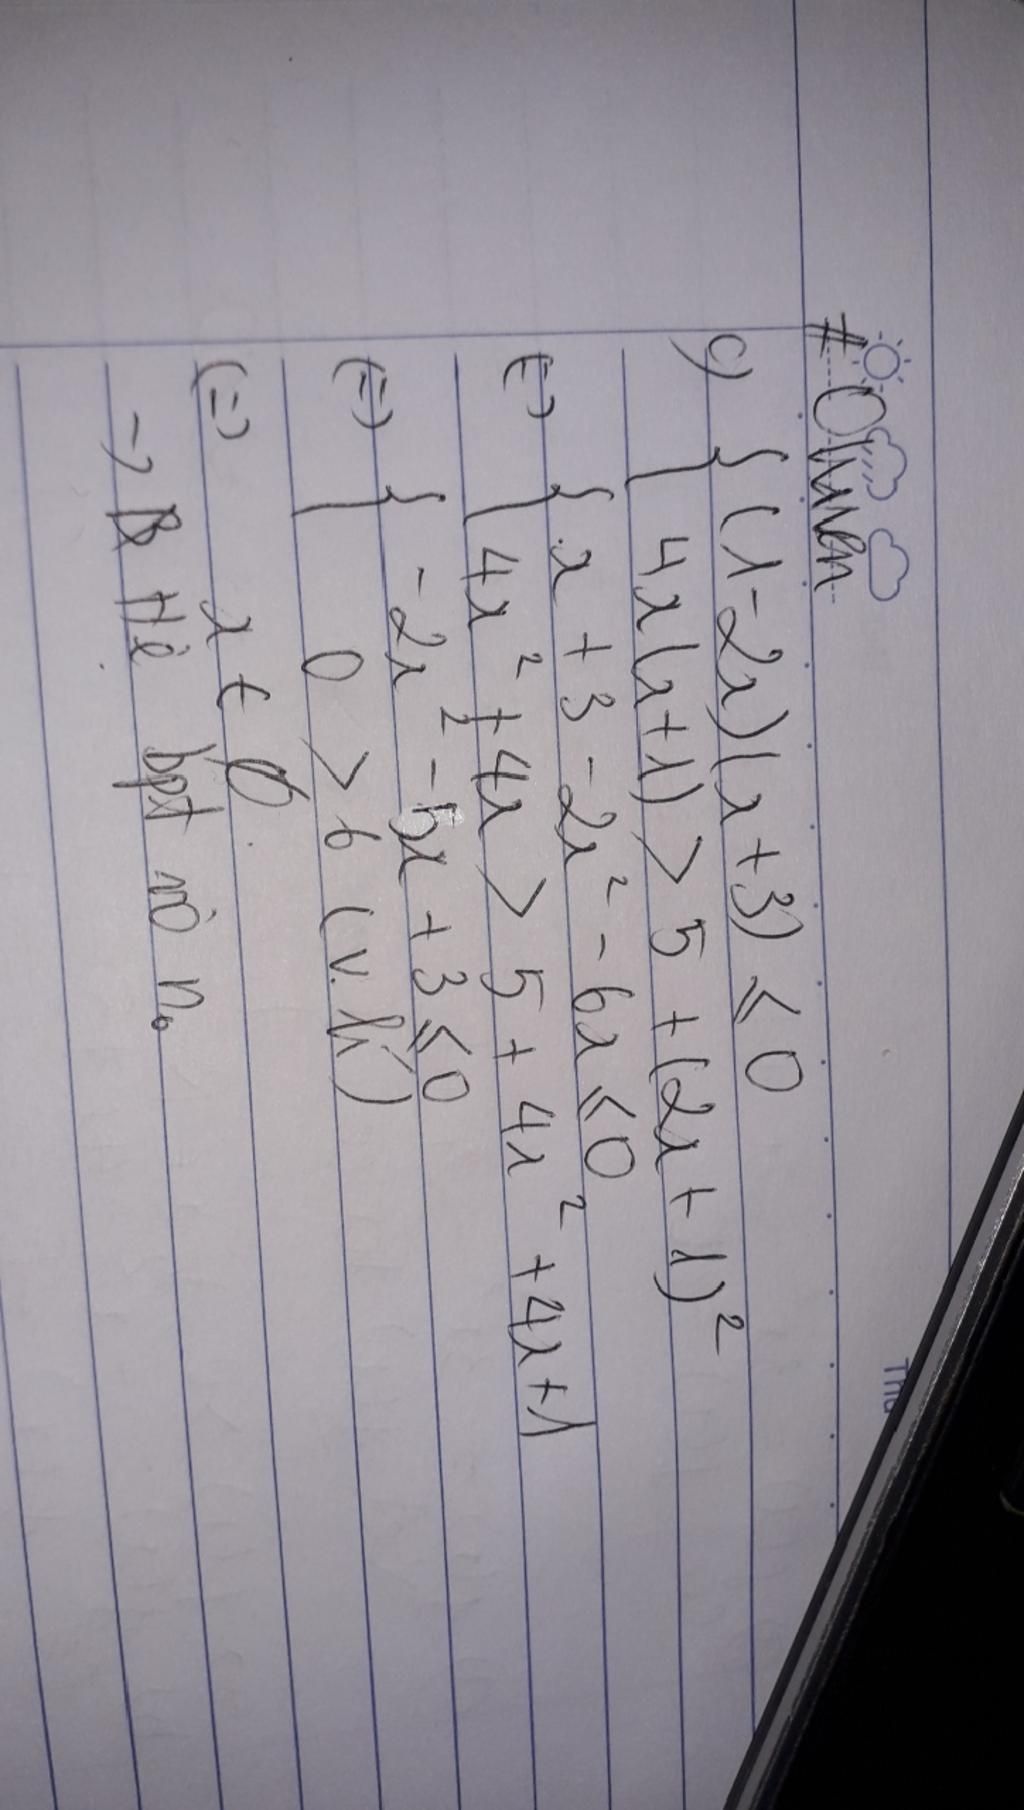 # Oluwen
c) { (1-2x)(x+3) ≤ 0
4x(x+1) > 5 + (2x+1)²
(=) { x + 3 - 2x² - 6x ≤ 0
4x² + 4x > 5 + 4x² + 4x + 1
(=) { -2x² - 5x + 3 ≤ 0
0 > 6 (v.lí)
(=) x ∈ ∅.
-> Hệ bpt vô n₀
Thu